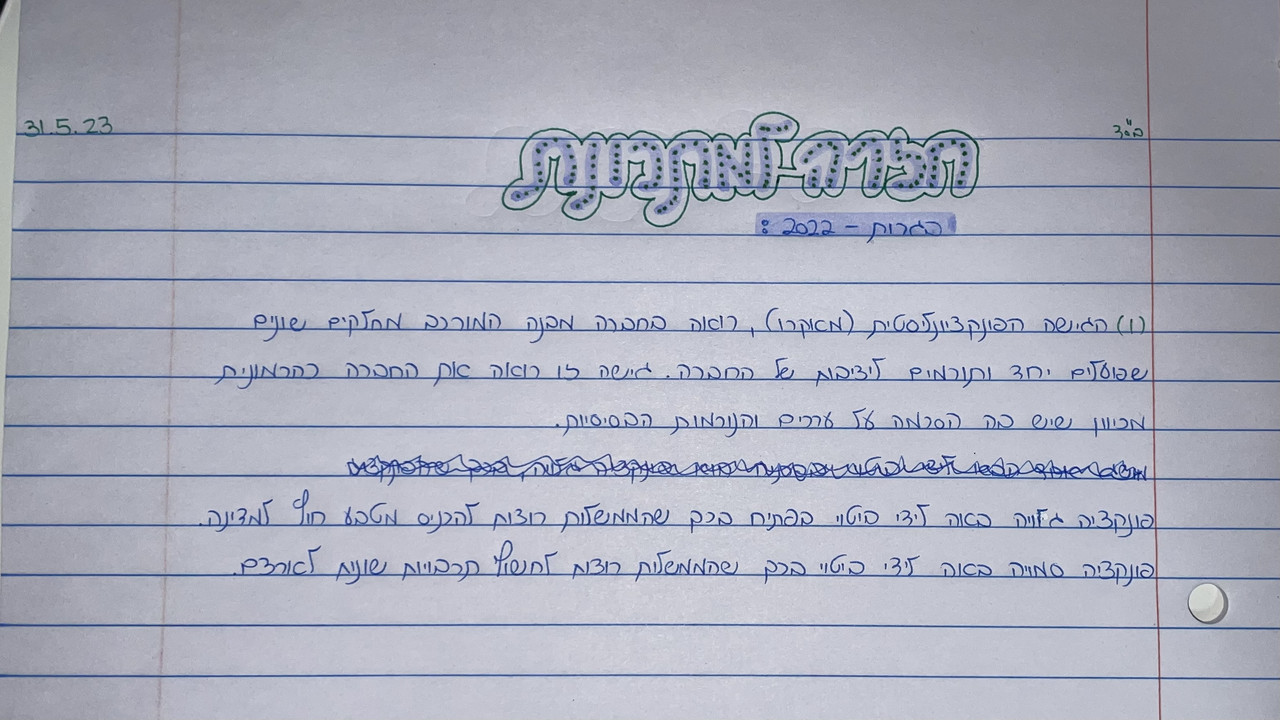 ב"ה
31.5.23
חברה-מתכונת
בגרות - 2022 :
(1) הגישה הפונקציונליסטית (מאקרו), רואה בחברה מבנה המורכב מחלקים שונים
שפועלים יחד ותורמים ליציבות של החברה. גישה זו רואה את החברה כהרמונית
מכיוון שיש בה הסכמה על ערכים והנורמות הבסיסיות.
פונקציה גלויה באה לידי ביטוי בפתיח בכך שהממשלות רוצות להכניס מטבע חוץ למדינה.
פונקציה סמויה באה לידי ביטוי בכך שהממשלות רוצות לחשוף תרבויות שונות לאורחם.